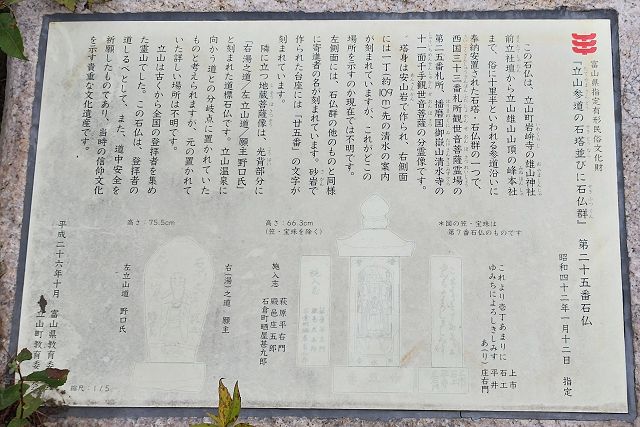 富山県指定有形民俗文化財
『立山参道の石塔並びに石仏群』 第二十五番石仏
昭和四十二年一月十二日 指定
この石仏は、立山町岩峅寺の雄山神社
前立社壇から立山雄山山頂の峰本社
まで、俗に十里半といわれる参道沿いに
奉納安置された石塔・石仏群の一つで、
西国三十三番札所観世音菩薩霊場の
第二五番札所、播磨国御嶽山清水寺の
十一面千手観世音菩薩の分霊像です。
塔身は安山岩で作られ、右側面
には一丁(約109m)先の清水の案内
が刻まれていますが、これがどこの
場所を示すのか現在では不明です。
左側面には、石仏群の他のものと同様
に寄進者の名が刻まれています。砂岩で
作られた台座には「廿五番」の文字が
刻まれています。
隣に立つ地蔵菩薩像は、光背部分に
「右湯之道/左立山道/願主野口氏」
と刻まれた道標石仏です。立山温泉に
向かう道との分岐点に置かれていた
ものと考えられますが、元の置かれて
いた詳しい場所は不明です。
立山は古くから全国の登拝者を集め
た霊山でした。この石仏は、登拝者の
道しるべとして、また、道中安全を
祈願したものであり、当時の信仰文化
を示す貴重な文化遺産です。
平成二十六年十月 富山県教育委
立山町教育委
*図の笠・宝珠は
第7番石仏のものです
高さ:66.3cm
(笠・宝珠を除く)
高さ:75.5cm
これより壱丁あまりに
ゆみちによろしきしみす あり
上市
石工 平井
庄右門
施入志
萩原平右門
殿邑庄五郎
石倉町晒屋甚九郎
右(湯)之道 願主
左立山道 野口氏
縮尺:1/5